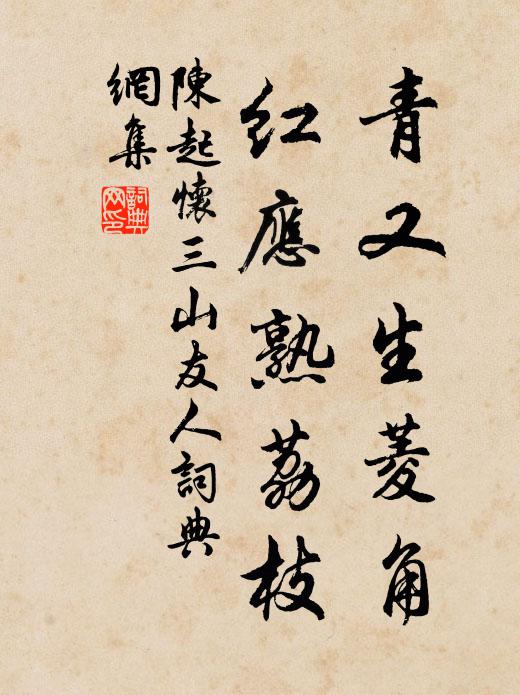 青又生菱角
紅應熟荔枝
陳起懷三山友人詞典
網集
詞典網印